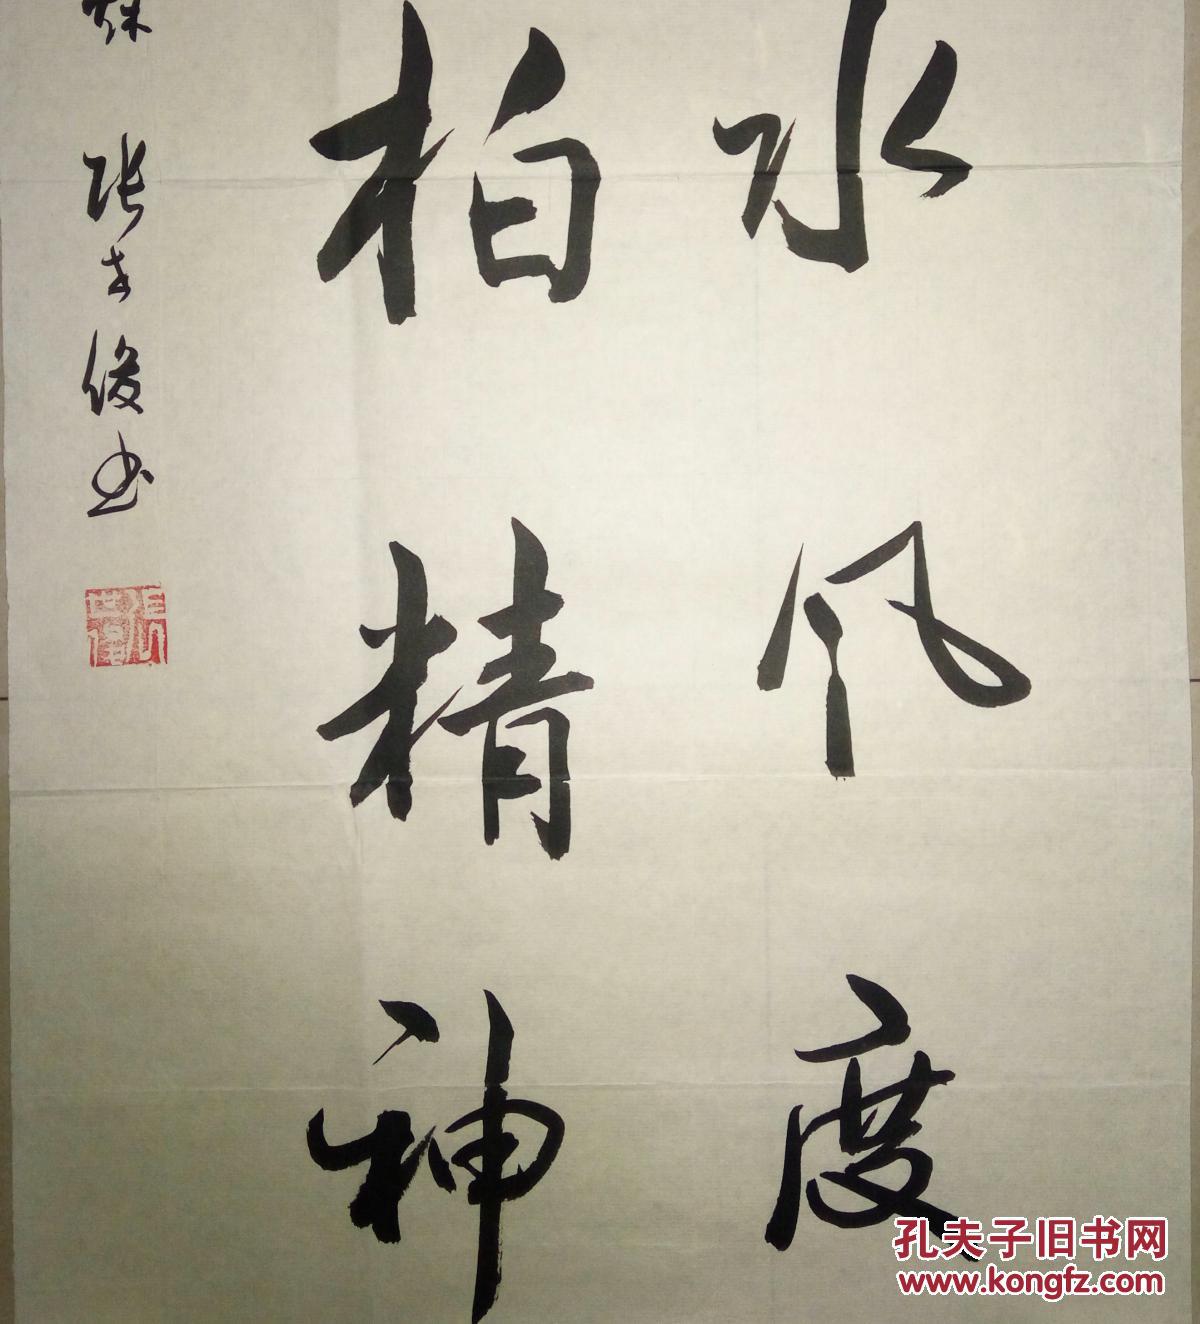 水风度
柏精神
张世俊书
张世俊
孔夫子旧书网
www.kongfz.com